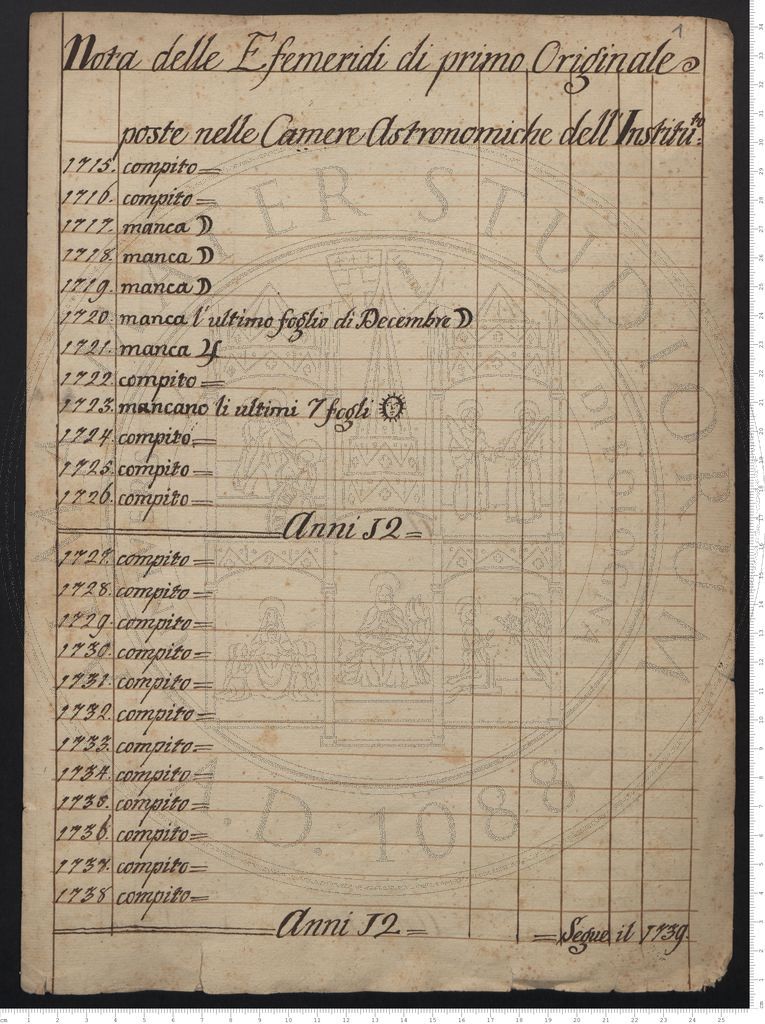 1
Nota delle Efemeridi di primo Originale
poste nelle Camere Astronomiche dell'Institu.to
1715. compito=
1716. compito=
1717. manca ☽
1718. manca ☽
1719. manca ☽
1720. manca l'ultimo foglio di Decembre ☽
1721. manca ♃
1722. compito=
1723. mancano li ultimi 7 fogli ☉
1724. compito=
1725. compito=
1726. compito=
Anni 12=
1727. compito=
1728. compito=
1729. compito=
1730. compito=
1731. compito=
1732. compito=
1733. compito=
1734. compito=
1735. compito=
1736. compito=
1737. compito=
1738 compito=
Anni 12= =Segue il 1739.
ALMA MATER STUDIORUM
A.D. 1088